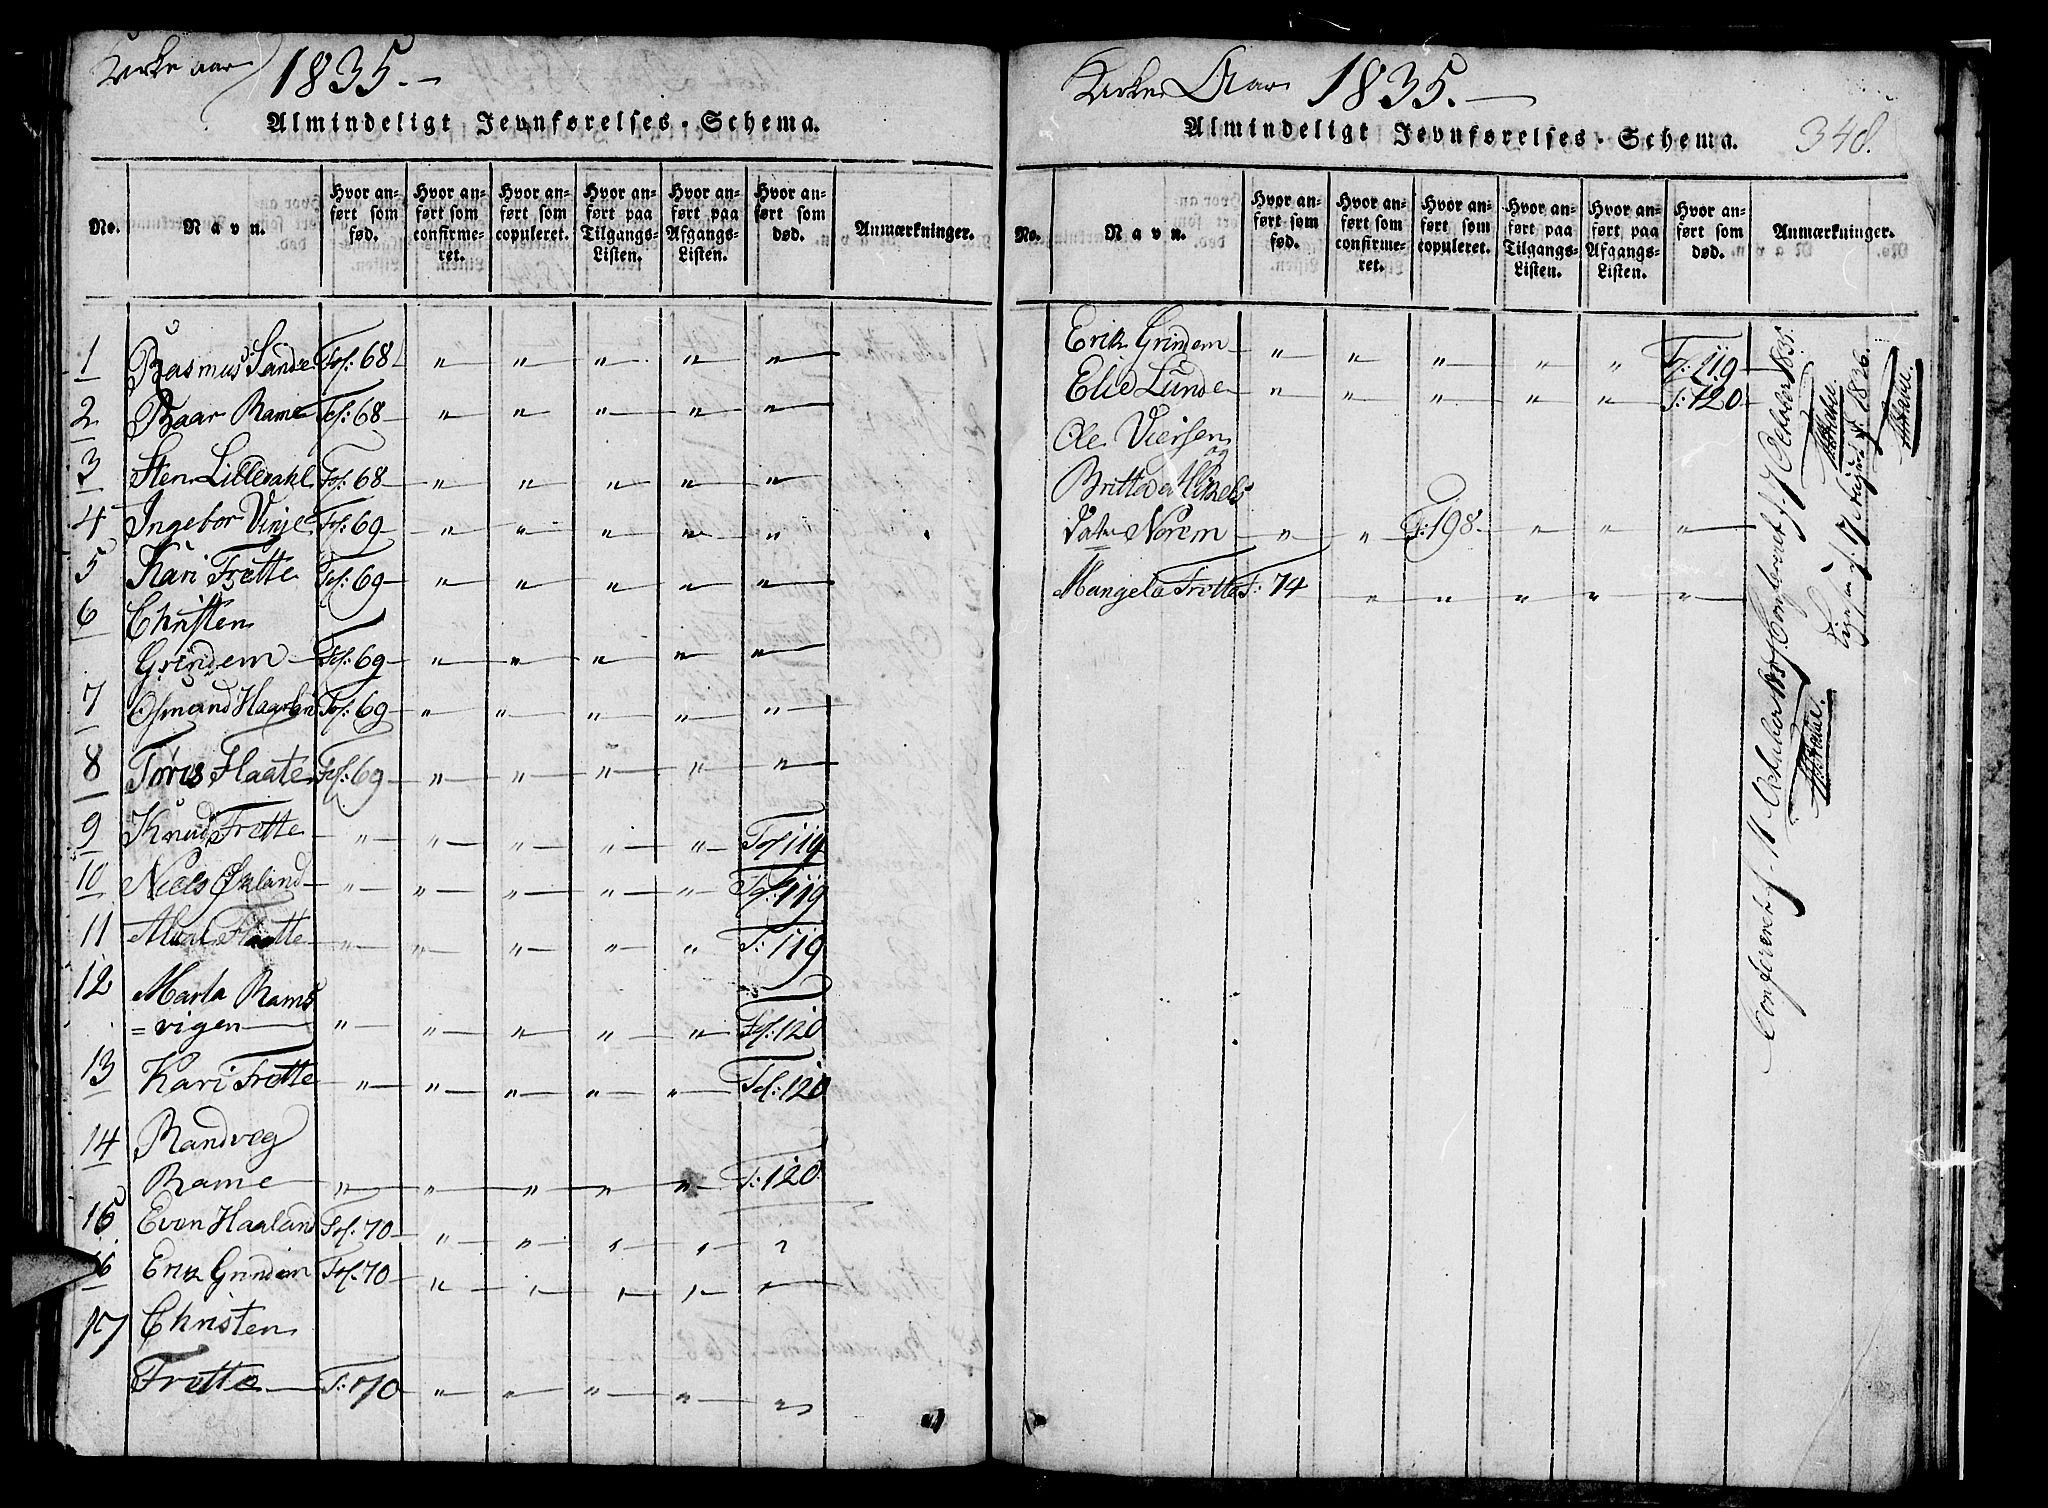 Kirke aar 1835.
Almindeligt Jevnførelses-Schema.
No.
Navn.
Hvor anført som fød.
Hvor anført som confirmeret.
Hvor anført som copuleret.
Hvor anført paa Tilgangs-Listen.
Hvor anført paa Afgangs-Listen.
Hvor anført som død.
Anmærkninger.
1 Rasmus Sande Fol: 68 " " " " "
2 Baar Rame Fol: 68 " " " " "
3 Sten Lilledahl Fol: 68 " " " " "
4 Ingebor Vinje Fol: 69 " " " " "
5 Kari Frette Fol: 69 " " " " "
6 Christen
Grindem Fol: 69 " " " " "
7 Osmund Haaland Fol: 69 " " " " "
8 Tøris Flaate Fol: 69 " " " " "
9 Knud Frette " " " " " Fol 119
10 Niels Øxland " " " " " Fol: 119
11 " " " " " F: 119
12 Marta Rams
=vigen " " " " " Fol: 120
13 Kari Frette " " " " " Fol: 120
14 Randveg
Rame " " " " " F: 120
15 Even Haaland Fol: 70 " " " " "
16 Erik Grindem Fol: 70 " " " " "
17 Christen
Frette F: 70 " " " " "
Kirke Aar 1835.
348.
Almindeligt Jevnførelses-Schema.
No.
Navn.
Hvor anført som fød.
Hvor anført som confirmeret.
Hvor anført som copuleret.
Hvor anført paa Tilgangs-Listen.
Hvor anført paa Afgangs-Listen.
Hvor anført som død.
Anmærkninger.
Erik Grindem " " " " " F: 119
Elie Lunde " " " " " F: 120
Ole Viersen
og
Britta Mikels
datr Norem " " F: 198 " " "
Mangela Frette F: 74 " " " " "
Confereret d. 11 October
Confereret d. 7 October 1835.
1836.